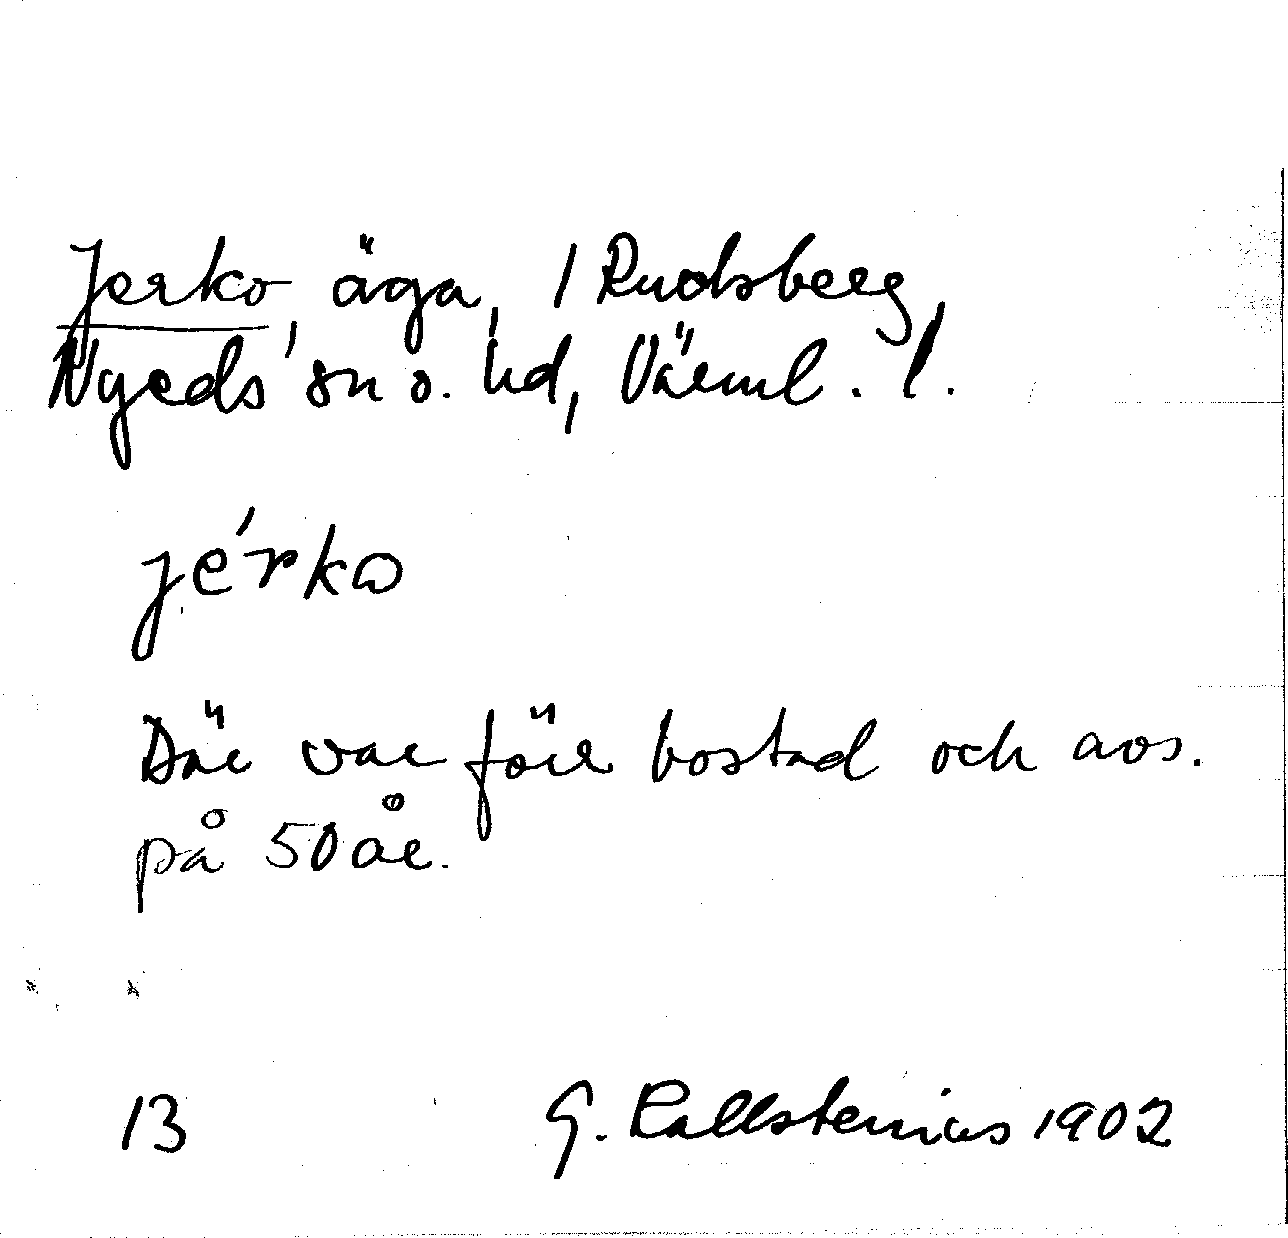 Jerko, äga, 1 Rudsberg,
Nyeds sn o. hd, Värml. l.
jérko
Där var förr bostad och avs.
på 50 år.
13 G. Kallstenius 1902